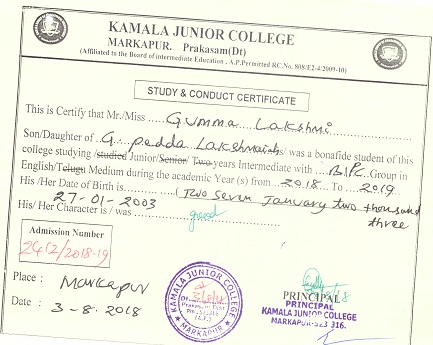 KAMALA JUNIOR COLLEGE
MARKAPUR. Prakasam(Dt)
(Affiliated to the Board of intermediate Education , A.P.Permitted RC.No. 808/E2-4/2009-10)
STUDY & CONDUCT CERTIFICATE
This is Certify that Mr./Miss Gumma Lakshmi
Son/Daughter of G. pedda Lakshmaiah was a bonafide student of this
college studying /studied Junior/Senior/ Two years Intermediate with Bi.P.C Group in
English/Telugu Medium during the academic Year (s) from 2018 To 2019
His /Her Date of Birth is (Two Seven January two thousand
27-01-2003 three
His/ Her Character is / was good
Admission Number
24(2/2018-19
Place : Markapur
Date : 3-8-2018
KAMALA JUNIOR COLLEGE
★ MARKAPUR ★
PRINCIPAL
PRINCIPAL
KAMALA JUNIOR COLLEGE
MARKAPUR-523 316.